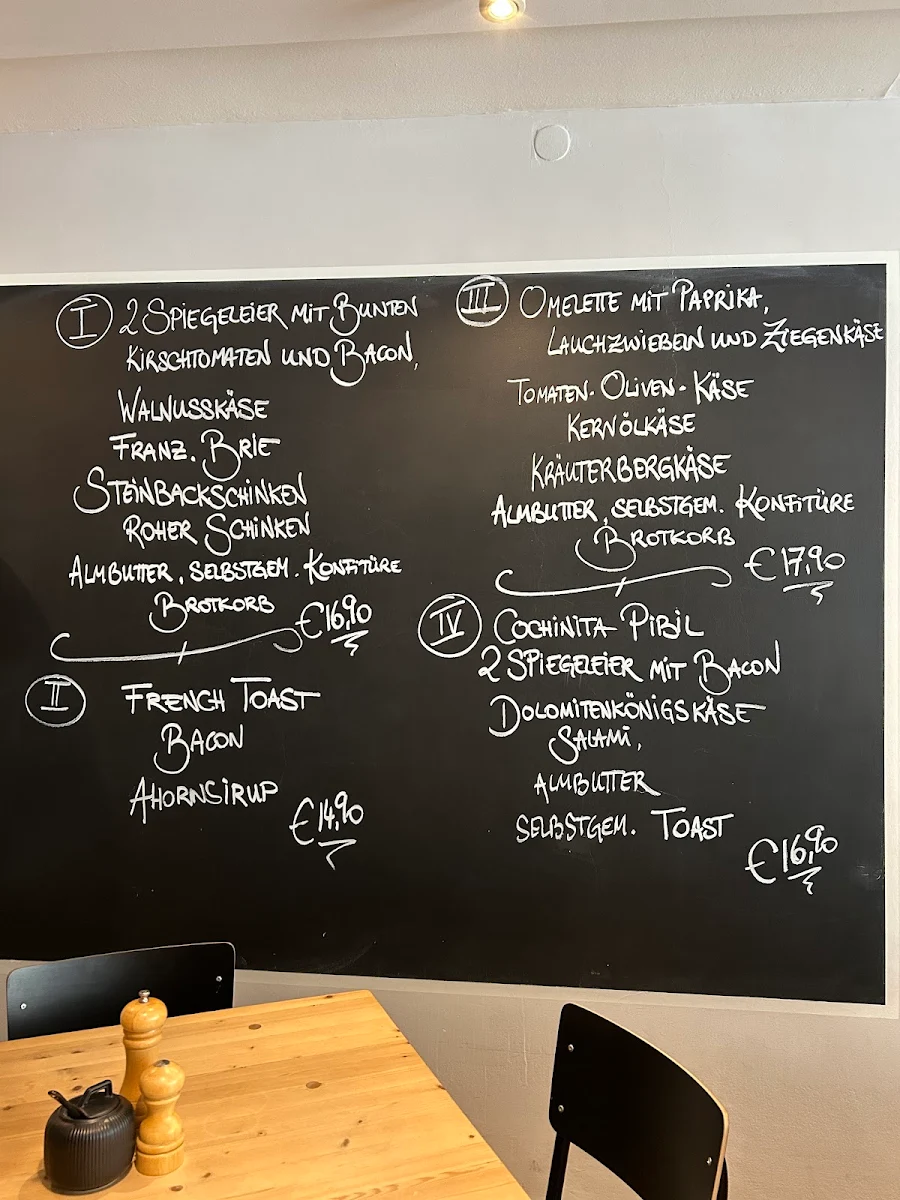 I 2 SPIEGELEIER MIT BUNTEN
KIRSCHTOMATEN UND BACON,
WALNUSSKÄSE
FRANZ. BRIE
STEINBACKSCHINKEN
ROHER SCHINKEN
ALMBUTTER, SELBSTGEM. KONFITÜRE
BROTKORB
€16,90
II FRENCH TOAST
BACON
AHORNSIRUP
€14,90
III OMELETTE MIT PAPRIKA,
LAUCHZWIEBELN UND ZIEGENKÄSE
TOMATEN-OLIVEN-KÄSE
KERNÖLKÄSE
KRÄUTERBERGKÄSE
ALMBUTTER, SELBSTGEM. KONFITÜRE
BROTKORB
€17,90
IV COCHINITA PIBIL
2 SPIEGELEIER MIT BACON
DOLOMITENKÖNIGSKÄSE
SALAMI,
ALMBUTTER
SELBSTGEM. TOAST
€16,90